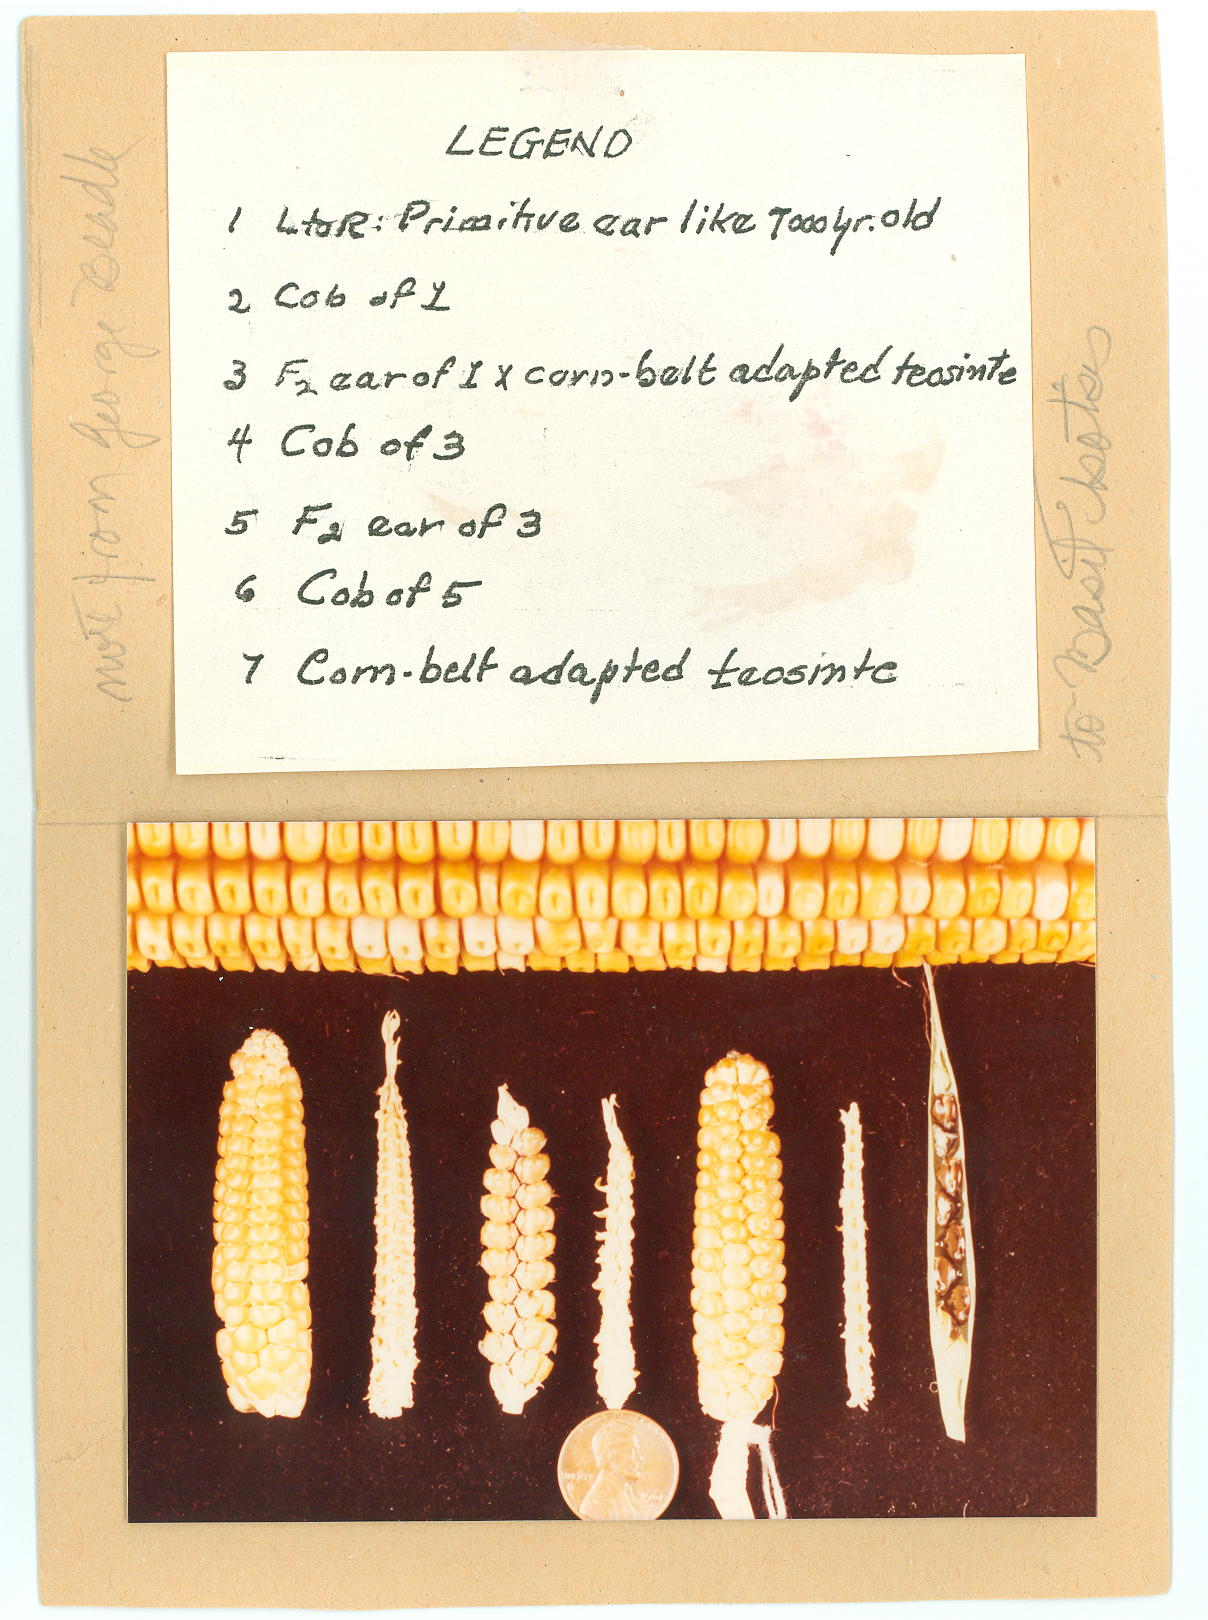 LEGEND
1 LtoR: Primitive ear like 7000yr. old
2 Cob of 1
3 F2 ear of 1 x corn-belt adapted teosinte
4 Cob of 3
5 F2 ear of 3
6 Cob of 5
7 Corn-belt adapted teosinte
note from George Beadle
to Basit
LIBERTY